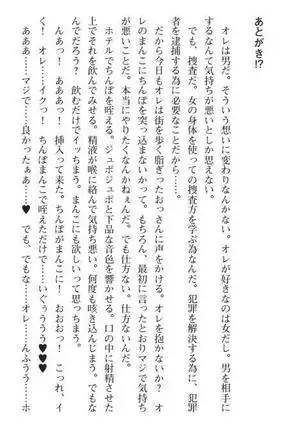 あとがき!?
　オレは男だ。そういう想いに変わりなんかない。オレが好きなのは女だし。男を相手に
するなんて気持ちが悪いとしか思えない。
　でも、捜査だ。女の身体を使っての捜査方を学ぶ為なんだ。犯罪を解決する為に、犯罪
者を逮捕する為に必要なことだから……。
　だから今日もオレは街を歩く脂ぎったおっさんに声をかける。オレを抱かないか？　オ
レのまんこにちんぽを突っ込まないかって。もちろん、最初に言ったとおりマジで気持ち
が悪いことだ。本当にやりたくなんかねぇんだ。でも仕方ない。仕方ないんだ。
　ホテルでちんぽを咥える。ジュポジュポと下品な音色を響かせる。口の中に射精させた
上でそれを飲んでみせる。精液が喉に絡んで気持ち悪い。何度も咳き込んじまう。
んでだろう？　飲むだけでイッちまう。まんこにも欲しいって思っちまう。
　んあっ！　あああっ！　挿入って来た。ちんぽがまんこに！　おおおっ！　これ、イ
く！　オレ……イクっ！　ちんぽまんこで咥えただけで……いぐぅううう♥♥♥
　あああ……マジで……良かったぁぁ……♥　でも、でもな……オレ……んふぅう……ホ